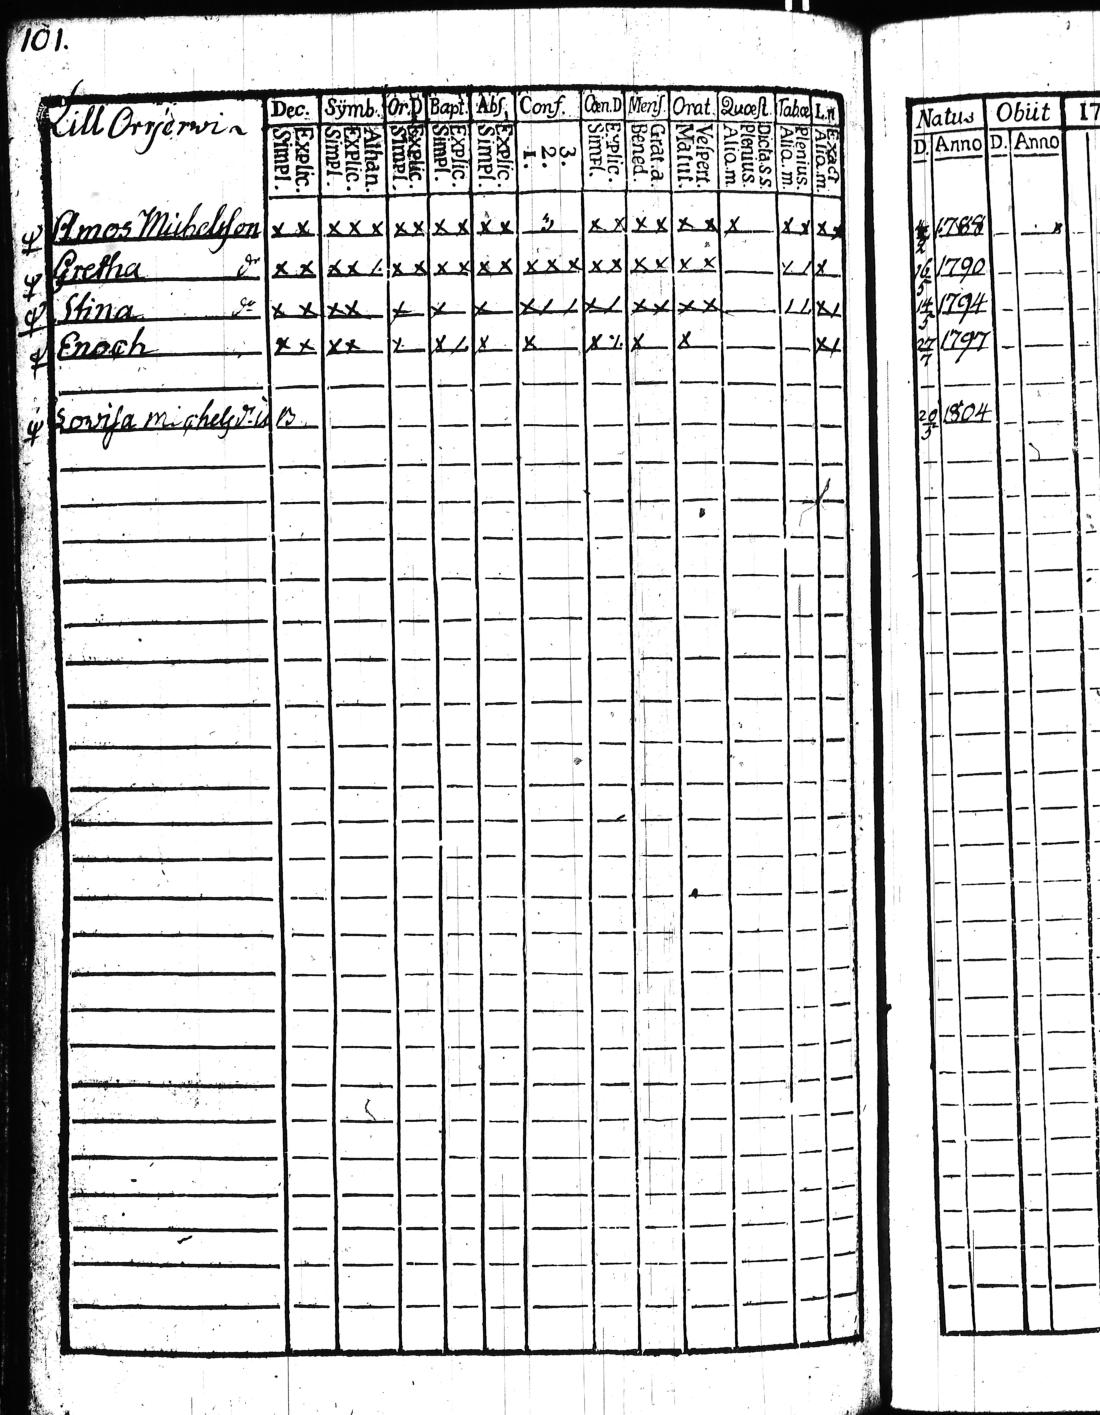 101.
Lill
Dec. Symb. Or.D Bapt. Abs. Conf. Cœn.D Mens. Orat. Quæst. Tabœ L.n Natus Obiit 17
Simpl. Explic. Simpl. Explic. Athan. Simpl. Explic. Simpl. Explic. Simpl. Explic. 1. 2. 3. Simpl. Explic. Bened. Grat.a. Matut. Vespert. Alio.m. Plenius. Dicta.s.s. Alio.m. Plenius. Alio.m. Exact D. Anno D. Anno
Amos Michelsson x x x x x x x x x x x 3 x x x x x x x x x x x 1788
Gretha dr x x x x / x x x x x x x x x x x x x x x / / x 16/5 1790
Stina dr x x x x x x x x / / x / x x x x / / x / 14/5 1794
Enoch x x x x x x / x x x x x x x / 27/7 1797
Lovisa Michelsd:r 20/3 1804